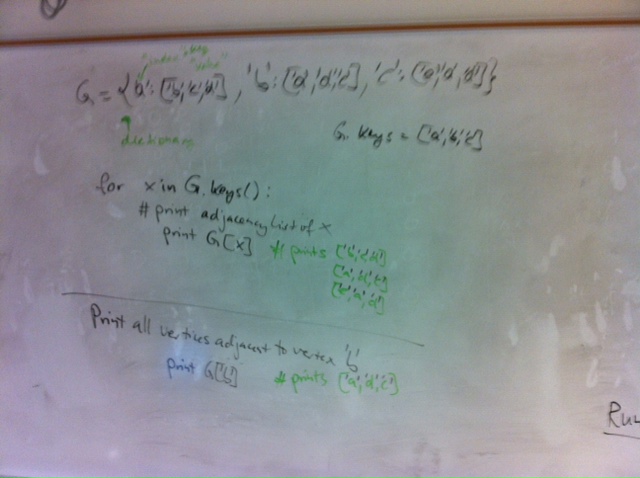 "index" "key"
"value"
G = {'a': ['b','c','d'], 'b': ['a','d','c'], 'c': ['a','d']}
dictionary
G.keys = ['a','b','c']
for x in G.keys():
# print adjacency list of x
print G[x] # prints ['b','c','d']
['a','d','c']
Print all vertices adjacent to vertex 'b'
print G['b'] # prints ['a','d','c']